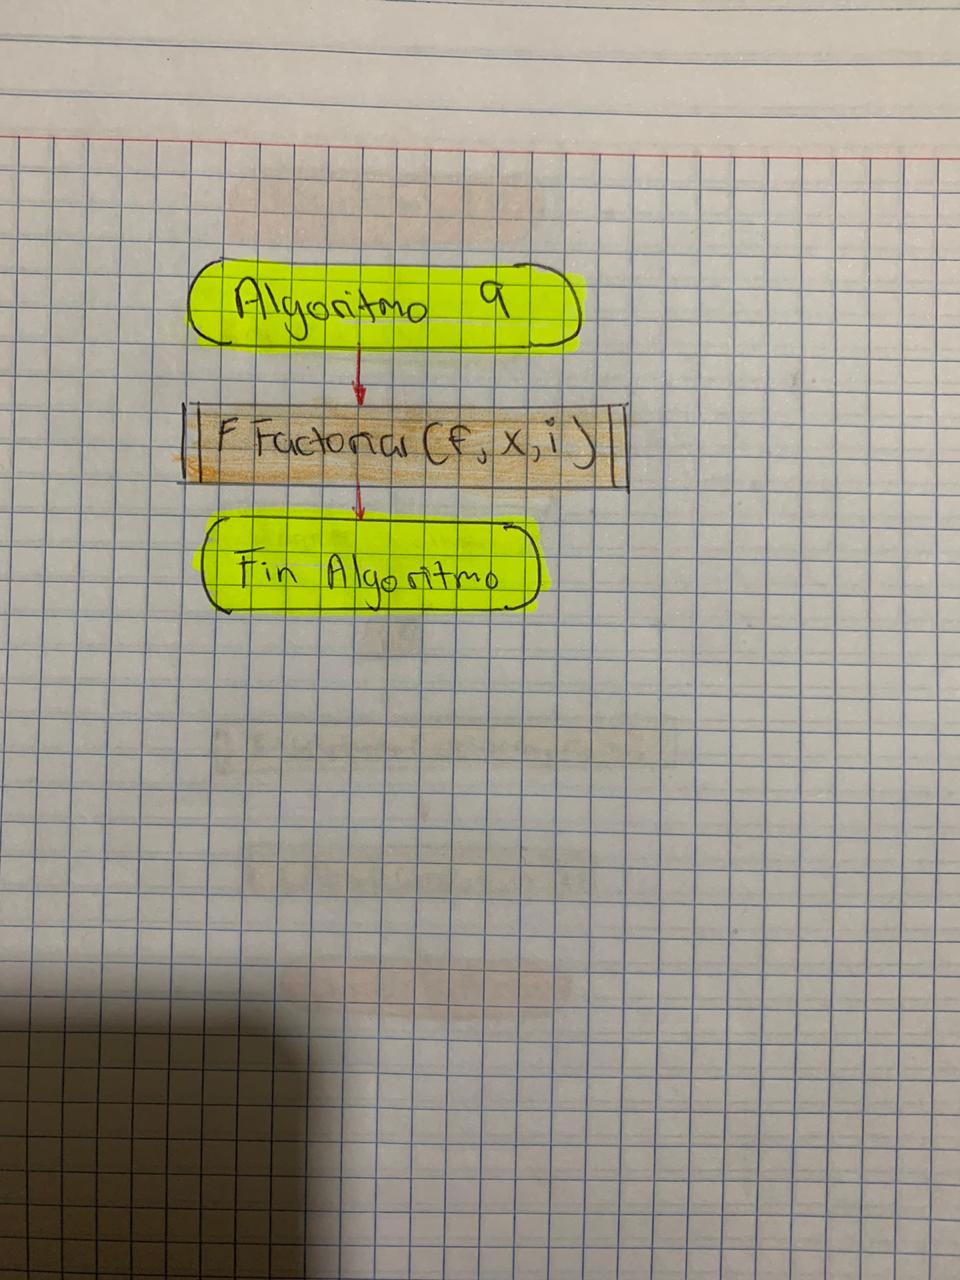 Algoritmo 9
F Factorial (f, x, i)
Fin Algoritmo